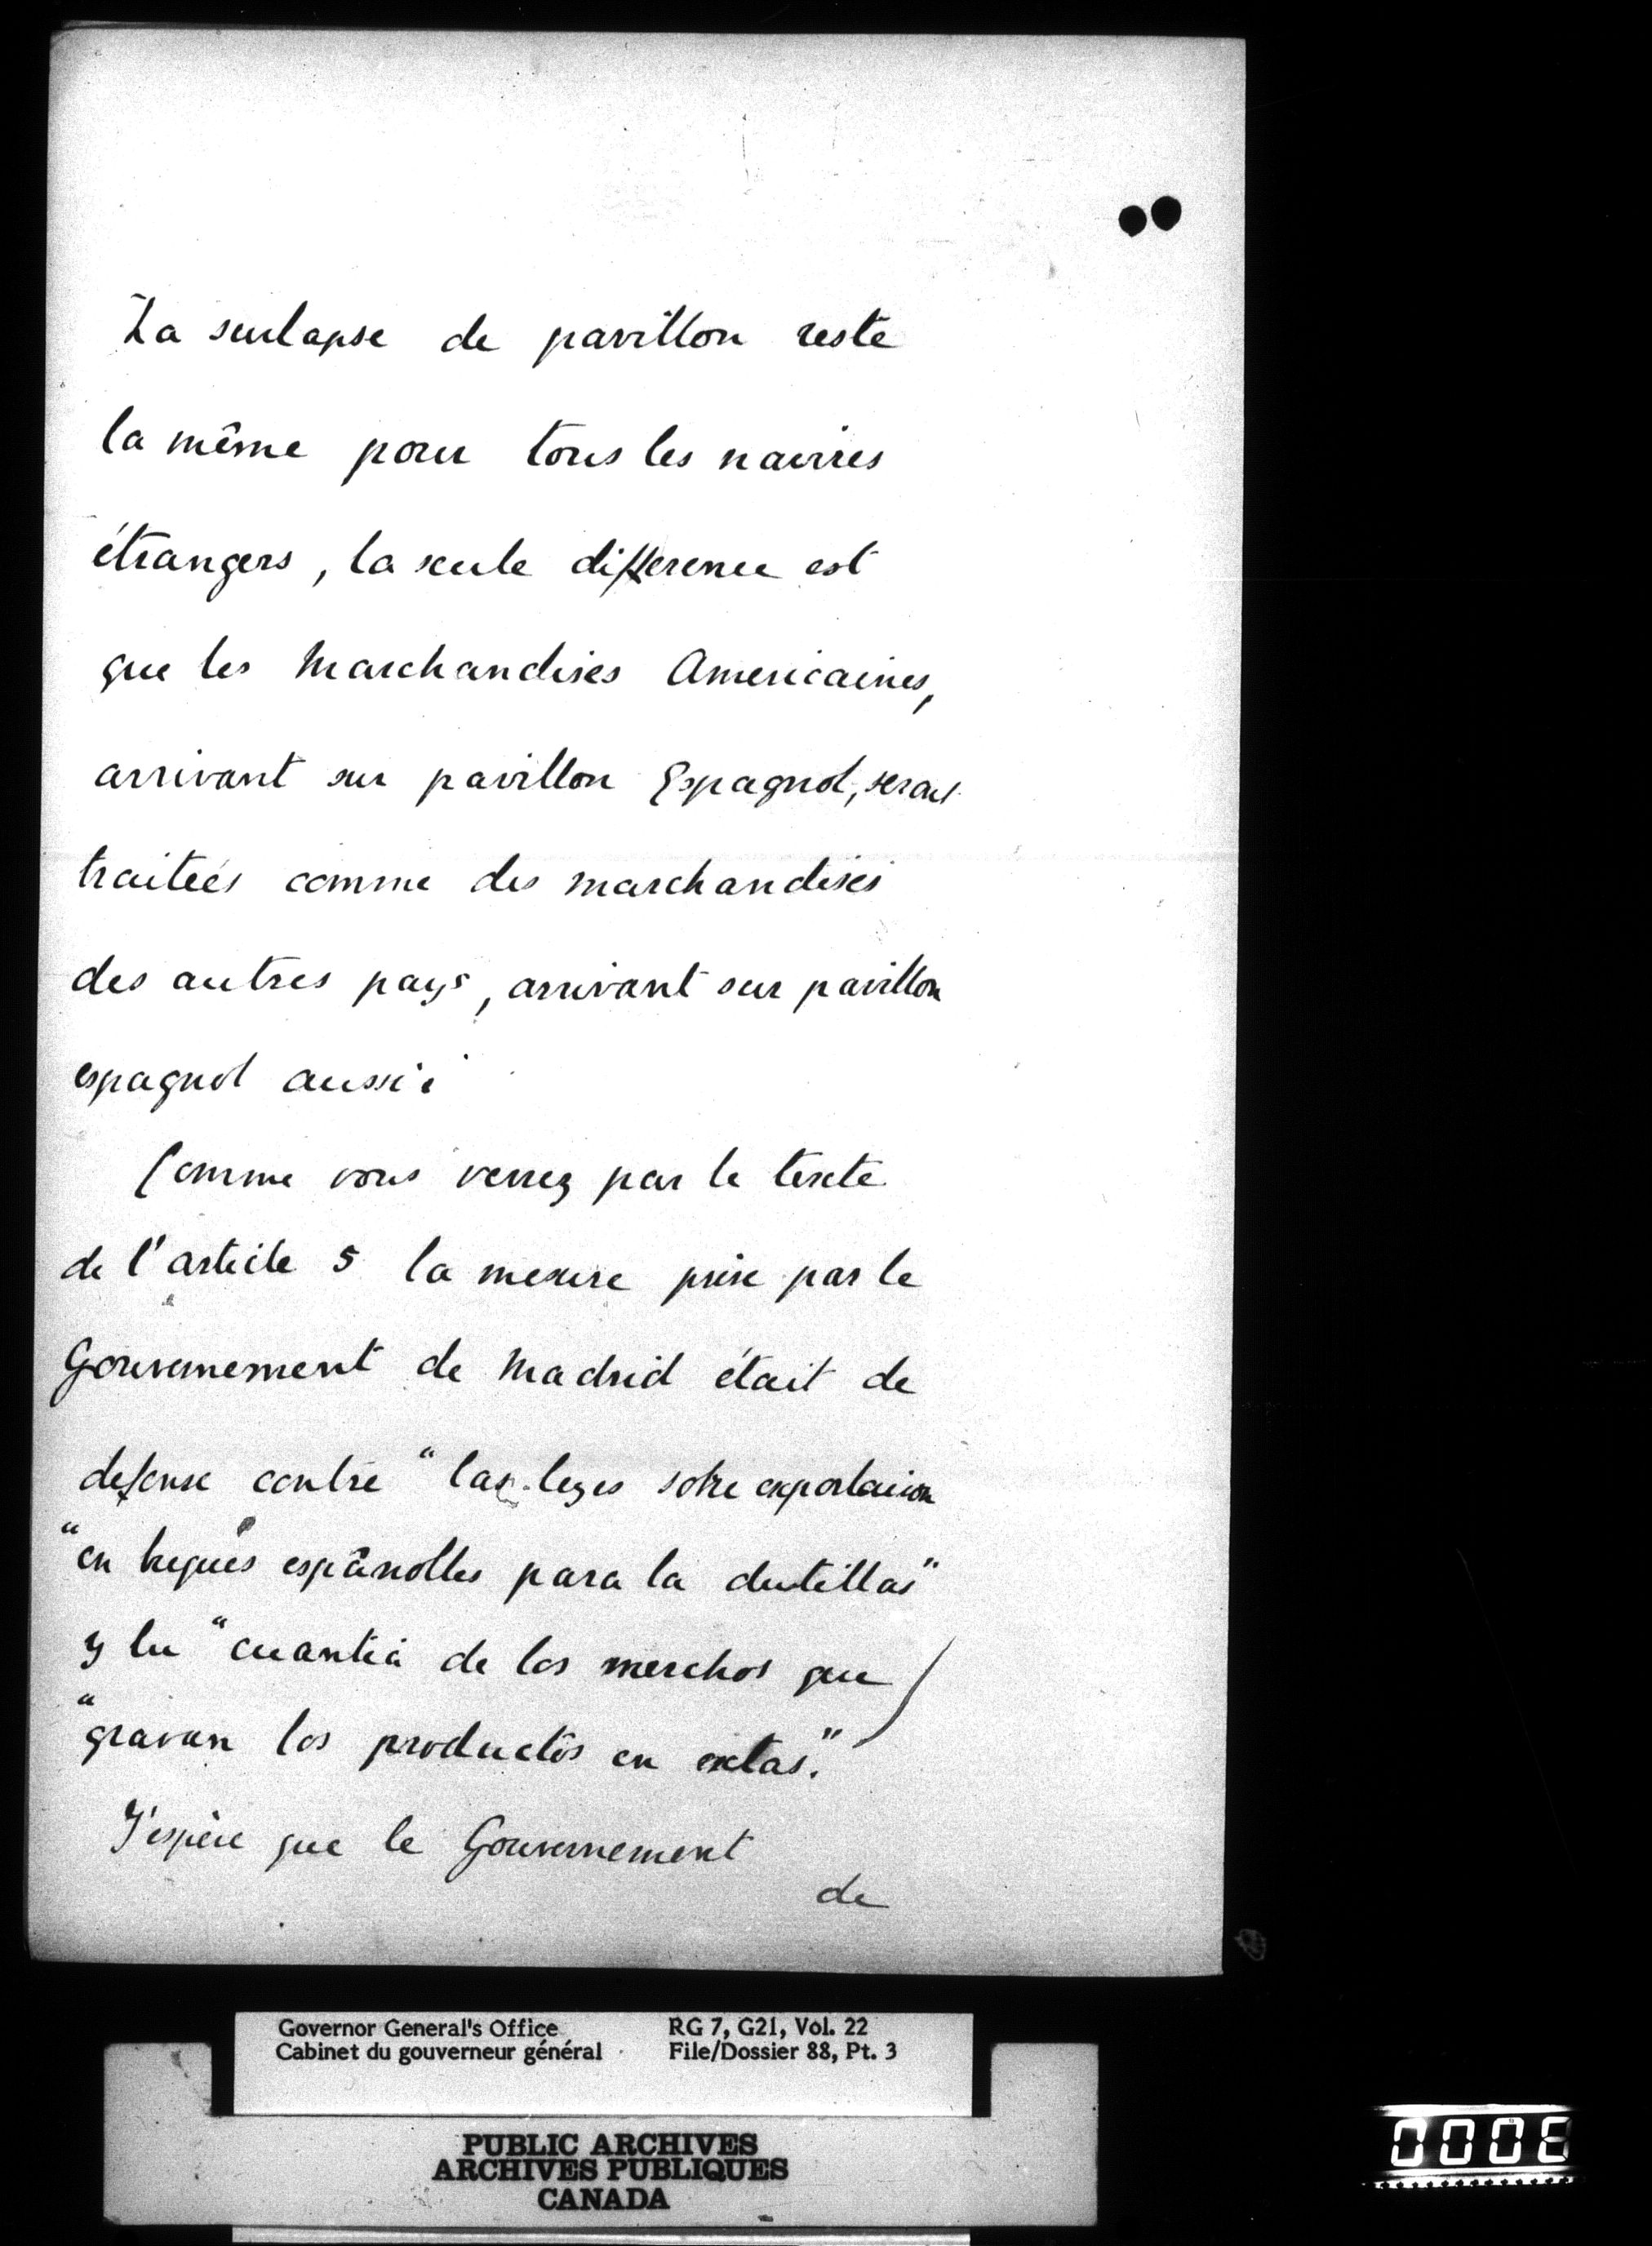 La surtapse de pavillon reste
la même pour tous les navires
étrangers, la seule difference est
que les Marchandises Americaines,
arrivant sur pavillon Espagnol, seront
traiteés comme des marchandises
des autres pays, arrivant sur pavillon
espagnol aussi
Comme vous verrez par le texte
de l'article 5 la mesure prise par le
Gouvernement de Madrid était de
defense contre "las leyes sobre exportacion
"en buques espânolles para la dutillas"
y la "cuantiá de los merchos que
"gravan los productos en extas."
J'espère que le Gouvernement
de
Governor General's Office
Cabinet du gouverneur général
RG 7, G21, Vol. 22
File/Dossier 88, Pt. 3
PUBLIC ARCHIVES
ARCHIVES PUBLIQUES
CANADA